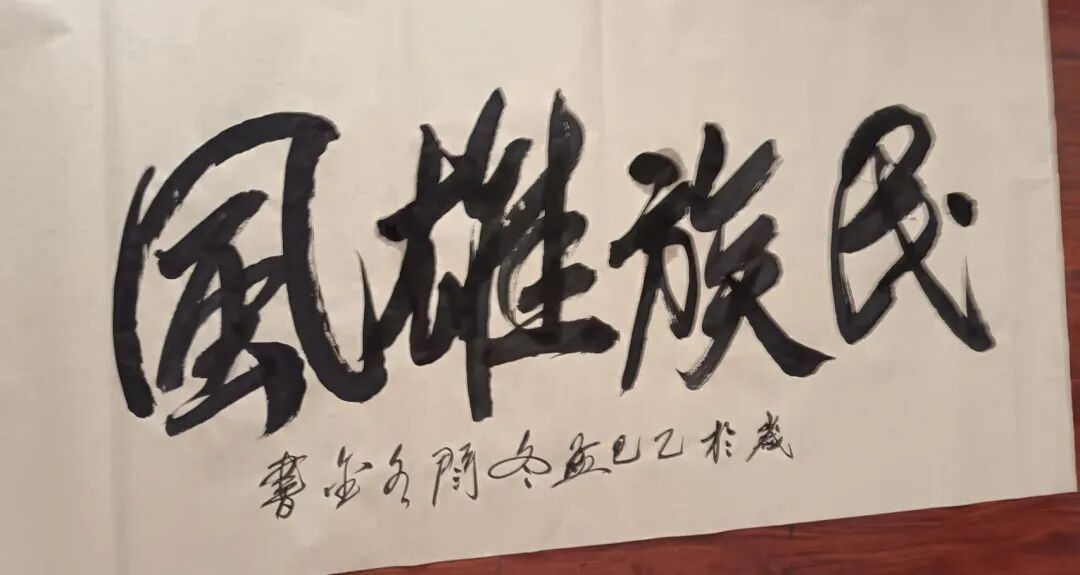 民族雄風
歲於乙巳孟冬閆名金書